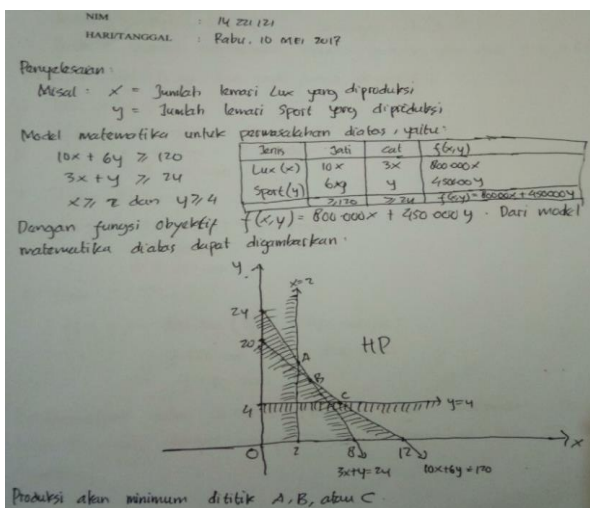 NIM : 14 221 121
HARI/TANGGAL : Rabu, 10 MEI 2017
Penyelesaian :
Misal : x = Jumlah lemari Lux yang diproduksi
y = Jumlah lemari Sport yang diproduksi
Model matematika untuk permasalahan diatas, yaitu :
10x + 6y ≥ 120
3x + y ≥ 24
x ≥ 2 dan y ≥ 4
Jenis Jati Cat f(x,y)
Lux (x) 10x 3x 800 000x
Sport (y) 6xy y 450000 y
≥ 120 ≥ 24 f(x,y) = 80000x + 450000y
Dengan fungsi obyektif f(x,y) = 800 000x + 450 000 y. Dari model
matematika diatas dapat digambarkan.
y
x=2
24
20
A
HP
B
C
4
y=4
0 2 8 12 x
3x+y=24 10x+6y=120
Produksi akan minimum dititik A, B, atau C.